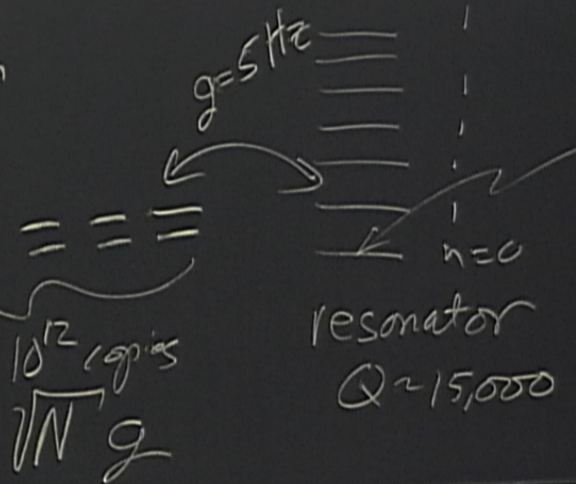 g=5 Hz
n=0
10^12 copies
√N g
resonator
Q~15,000